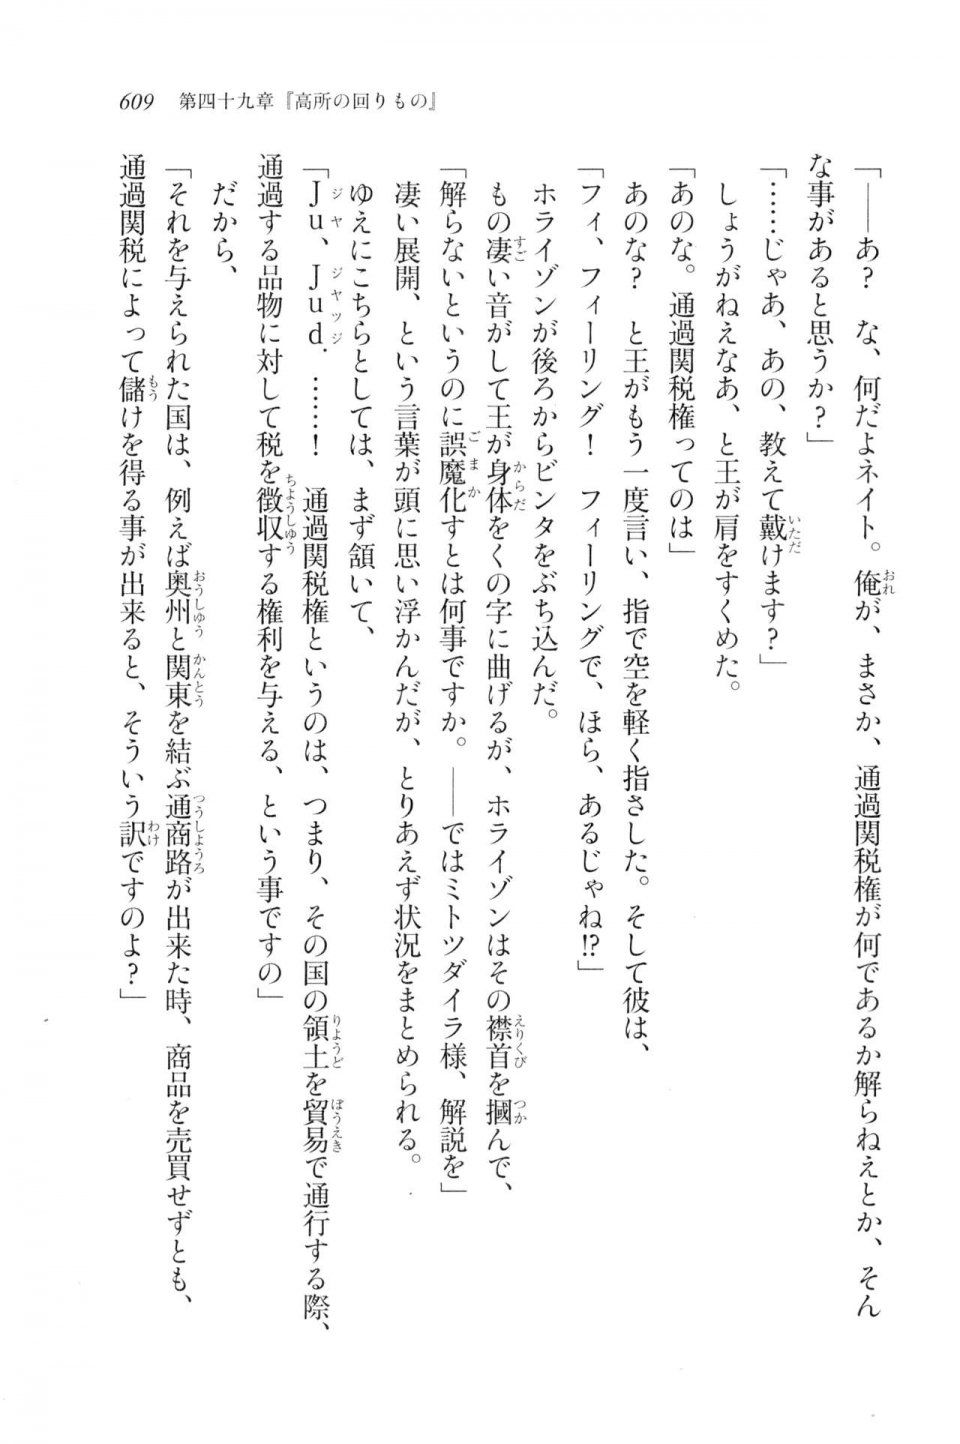 609　第四十九章『高所の回りもの』
「――あ？　な、何だよネイト。俺が、まさか、通過関税権が何であるか解らねえとか、そん
な事があると思うか？」
「……じゃあ、あの、教えて戴けます？」
しょうがねえなあ、と王が肩をすくめた。
「あのな。通過関税権ってのは」
あのな？　と王がもう一度言い、指で空を軽く指さした。そして彼は、
「フィ、フィーリング！　フィーリングで、ほら、あるじゃね!?」
ホライゾンが後ろからビンタをぶち込んだ。
もの凄い音がして王が身体をくの字に曲げるが、ホライゾンはその襟首を摑んで、
「解らないというのに誤魔化すとは何事ですか。――ではミトツダイラ様、解説を」
凄い展開、という言葉が頭に思い浮かんだが、とりあえず状況をまとめられる。
ゆえにこちらとしては、まず頷いて、
「Ｊｕ、Ｊｕｄ．……！　通過関税権というのは、つまり、その国の領土を貿易で通行する際、
通過する品物に対して税を徴収する権利を与える、という事ですの」
だから、
「それを与えられた国は、例えば奥州と関東を結ぶ通商路が出来た時、商品を売買せずとも、
通過関税によって儲けを得る事が出来ると、そういう訳ですのよ？」